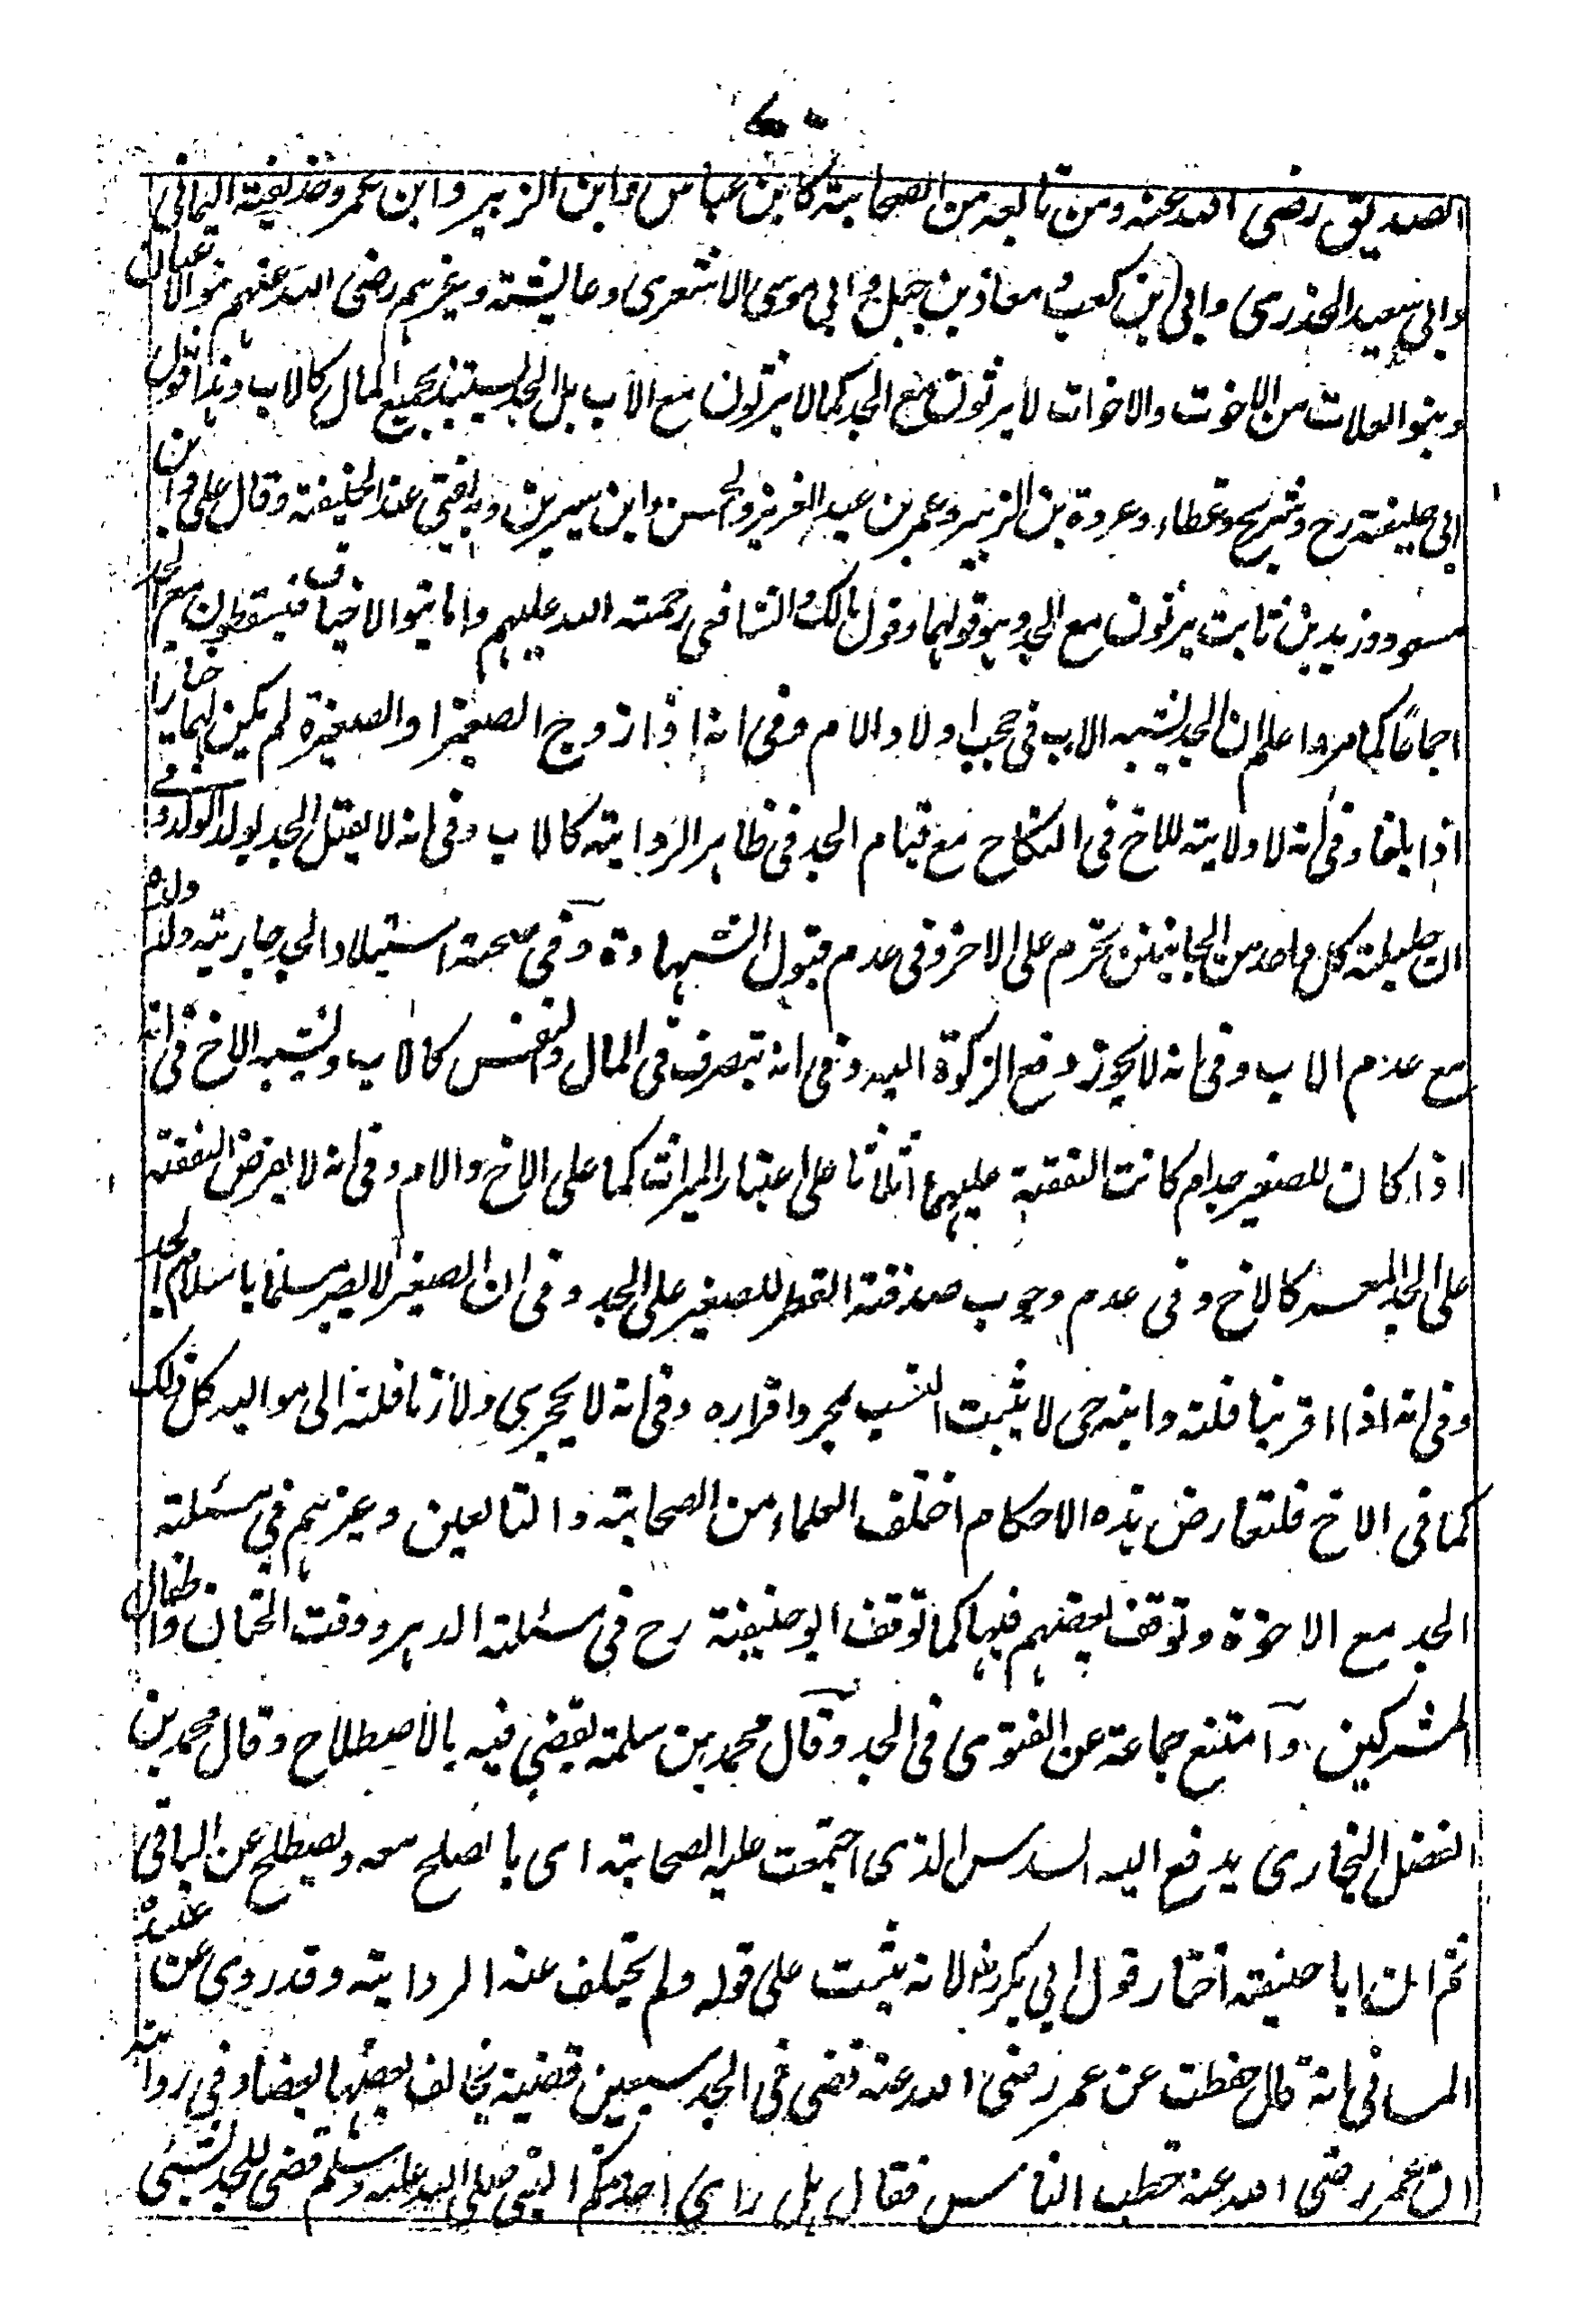 الصديق رضى الله عنه ومن تابعه من الصحابة كابن عباس وابن الزبير وابن عمر وحذيفة اليمانى
وابى سعيد الخذرى وابى ابن كعب و معاذ بن جبل و ابى موسى الاشعرى وعايشة وغيرهم رضى الله عنهم بنو الاعيان
وبنو العلات من الاخوت والاخوات لا يرثون مع الجد كما لا يرثون مع الاب بل الجد يستبد بجميع المال كالاب وهذا قول
ابى حنيفة رح وشريح وعطاء وعروة بن الزبير وعمر بن عبد العزيز والحسن وابن سيرين وبه يفتى عند الحنيفة وقال على وابن
مسعود وزيد بن ثابت يرثون مع الجد وهو قولهما وقول مالك والشافعى رحمة الله عليهم واما بنو الاخياف فيسقطون مع الجد
اجماعًا كما مر واعلم ان الجد يشبه الاب فى حجب اولاد الام وفى انه اذا زوج الصغير او الصغيرة لم يكن لهما خيارا
اذا بلغا وفى انه لا ولاية للاخ فى النكاح مع قيام الجد فى ظاهر الرواية كالاب وفى انه لا يقتل الجد بولد الولد وفى
ان حليلة كل واحد من الجانبين تحرم على الاخر وفى عدم قبول الشهادة وفى صحة استيلاد الجد جارية ولد ولده
مع عدم الاب وفى انه لا يجوز دفع الزكوة اليه وفى انه يتصرف فى المال والنفس كالاب ويشبه الاخ فى انه
اذا كان للصغير جد وام كانت النفقة عليهما اثلاثا على اعتبار الميراث كما على الاخ والام وفى انه لا يفرض النفقة
على الجد المعسر كالاخ وفى عدم وجوب صدقة الفطر للصغير على الجد وفى ان الصغير لا يصير مسلما باسلام الجد
وفى انه اذا اقر بنافلة وابنه حى لا يثبت النسب بمجرد اقراره وفى انه لا يجرى ولاء نافلة الى مواليه كل ذلك
كما فى الاخ فلتعارض هذه الاحكام اختلف العلماء من الصحابة والتابعين وغيرهم فى مسئلة
الجد مع الاخوة وتوقف بعضهم فيها كما توقف ابو حنيفة رح فى مسئلة الدهر ووقت الختان واطفال
المشركين وامتنع جماعة عن الفتوى فى الجد وقال محمد بن سلمة يقضى فيه بالاصطلاح وقال محمد بن
الفضل البخارى يدفع اليه السدس الذى اجتمعت عليه الصحابة اى بالصلح معه ويصطلح عن الباقى
ثم ان ابا حنيفة اختار قول ابى بكر رض لانه يثبت على قوله ولم تختلف عنه الرواية وقد روى عن عبيدة
السلمانى انه قال حفظت عن عمر رضى الله عنه قضى فى الجد سبعين قضية يخالف بعضها بعضا وفى رواية
ان عمر رضى الله عنه خطب الناس فقال هل راى احد منكم النبى صلى الله عليه وسلم قضى للجد بشيئ